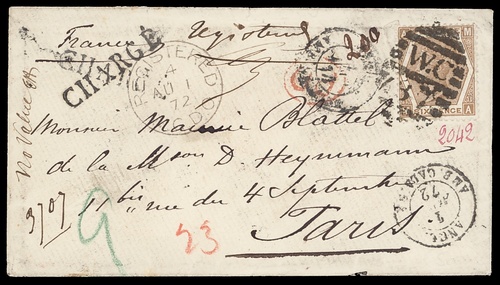 France Registered
CHARGÉ
CHARGÉ
REGISTERED
4
AU 1
72
200
W.C
SIXPENCE
M
A
2042
No Value
Monsieur Maurice Blattel
de la Mson D. Heymmann
11 bis rue du 4 Septembre
Paris
3707
9
23
ANGL.
AMB. CALAIS
72